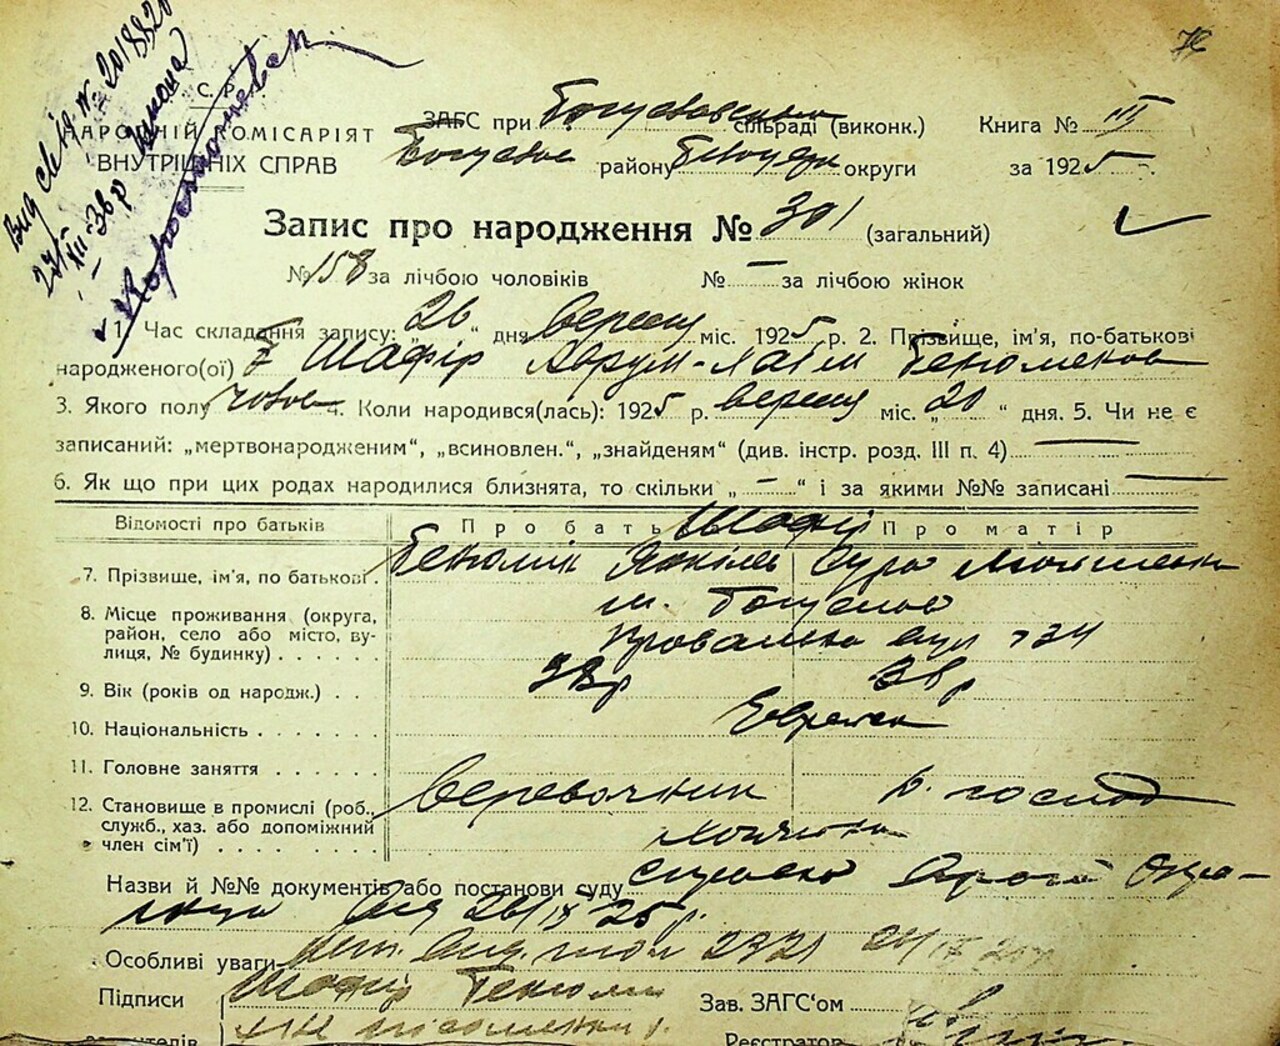 Вид свід № 2018820
27/XII-38 р
С. Р.
НАРОДНІЙ КОМІСАРІЯТ
ВНУТРІШНІХ СПРАВ
ЗАГС при Богуславському сільраді (виконк.) Книга № III
Богуслав району Білоцерк округи за 1925 р.
Запис про народження № 301 (загальний)
№ 158 за лічбою чоловіків № — за лічбою жінок
1. Час складання запису: „26“ дня вересня міс. 1925 р. 2. Прізвище, ім'я, по-батькові
народженого(ої) Шафір Аврум-Хаїм Бенюменов
3. Якого полу чолов 4. Коли народився(лась): 1925 р. вересня міс. „20“ дня. 5. Чи не є
записаний: „мертвонародженим“, „всиновлен.“, „знайденям“ (див. інстр. розд. III п. 4) —
6. Як що при цих родах народилися близнята, то скільки „—“ і за якими №№ записані —
Відомості про батьків Про батька Про матір
Шафір
7. Прізвище, ім'я, по батькові. Бенюмін Сура
8. Місце проживання (округа, район, село або місто, вулиця, № будинку) м. Богуслав
вул 34
9. Вік (років од народж.) 38 р 38 р
10. Національність Евреи
11. Головне заняття
12. Становище в промислі (роб., служб., хаз. або допоміжний член сім'ї) Веревочник д. господ
Назви й №№ документів або постанови суду справка
26/IX 25 р.
Особливі уваги 2321
Підписи Шафір Бенюмін Зав. ЗАГС'ом
Реєстратор